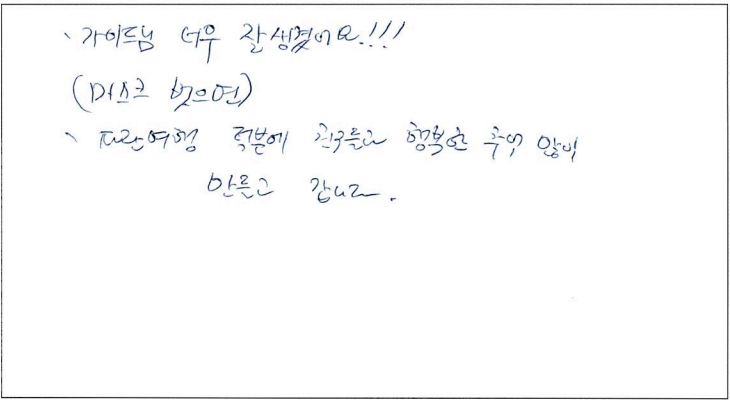 、가이드님 너무 잘생겼어요!!!
(마스크 벗으면)
、파란여행 덕분에 친구들과 행복한 추억 많이
만들고 갑니다.